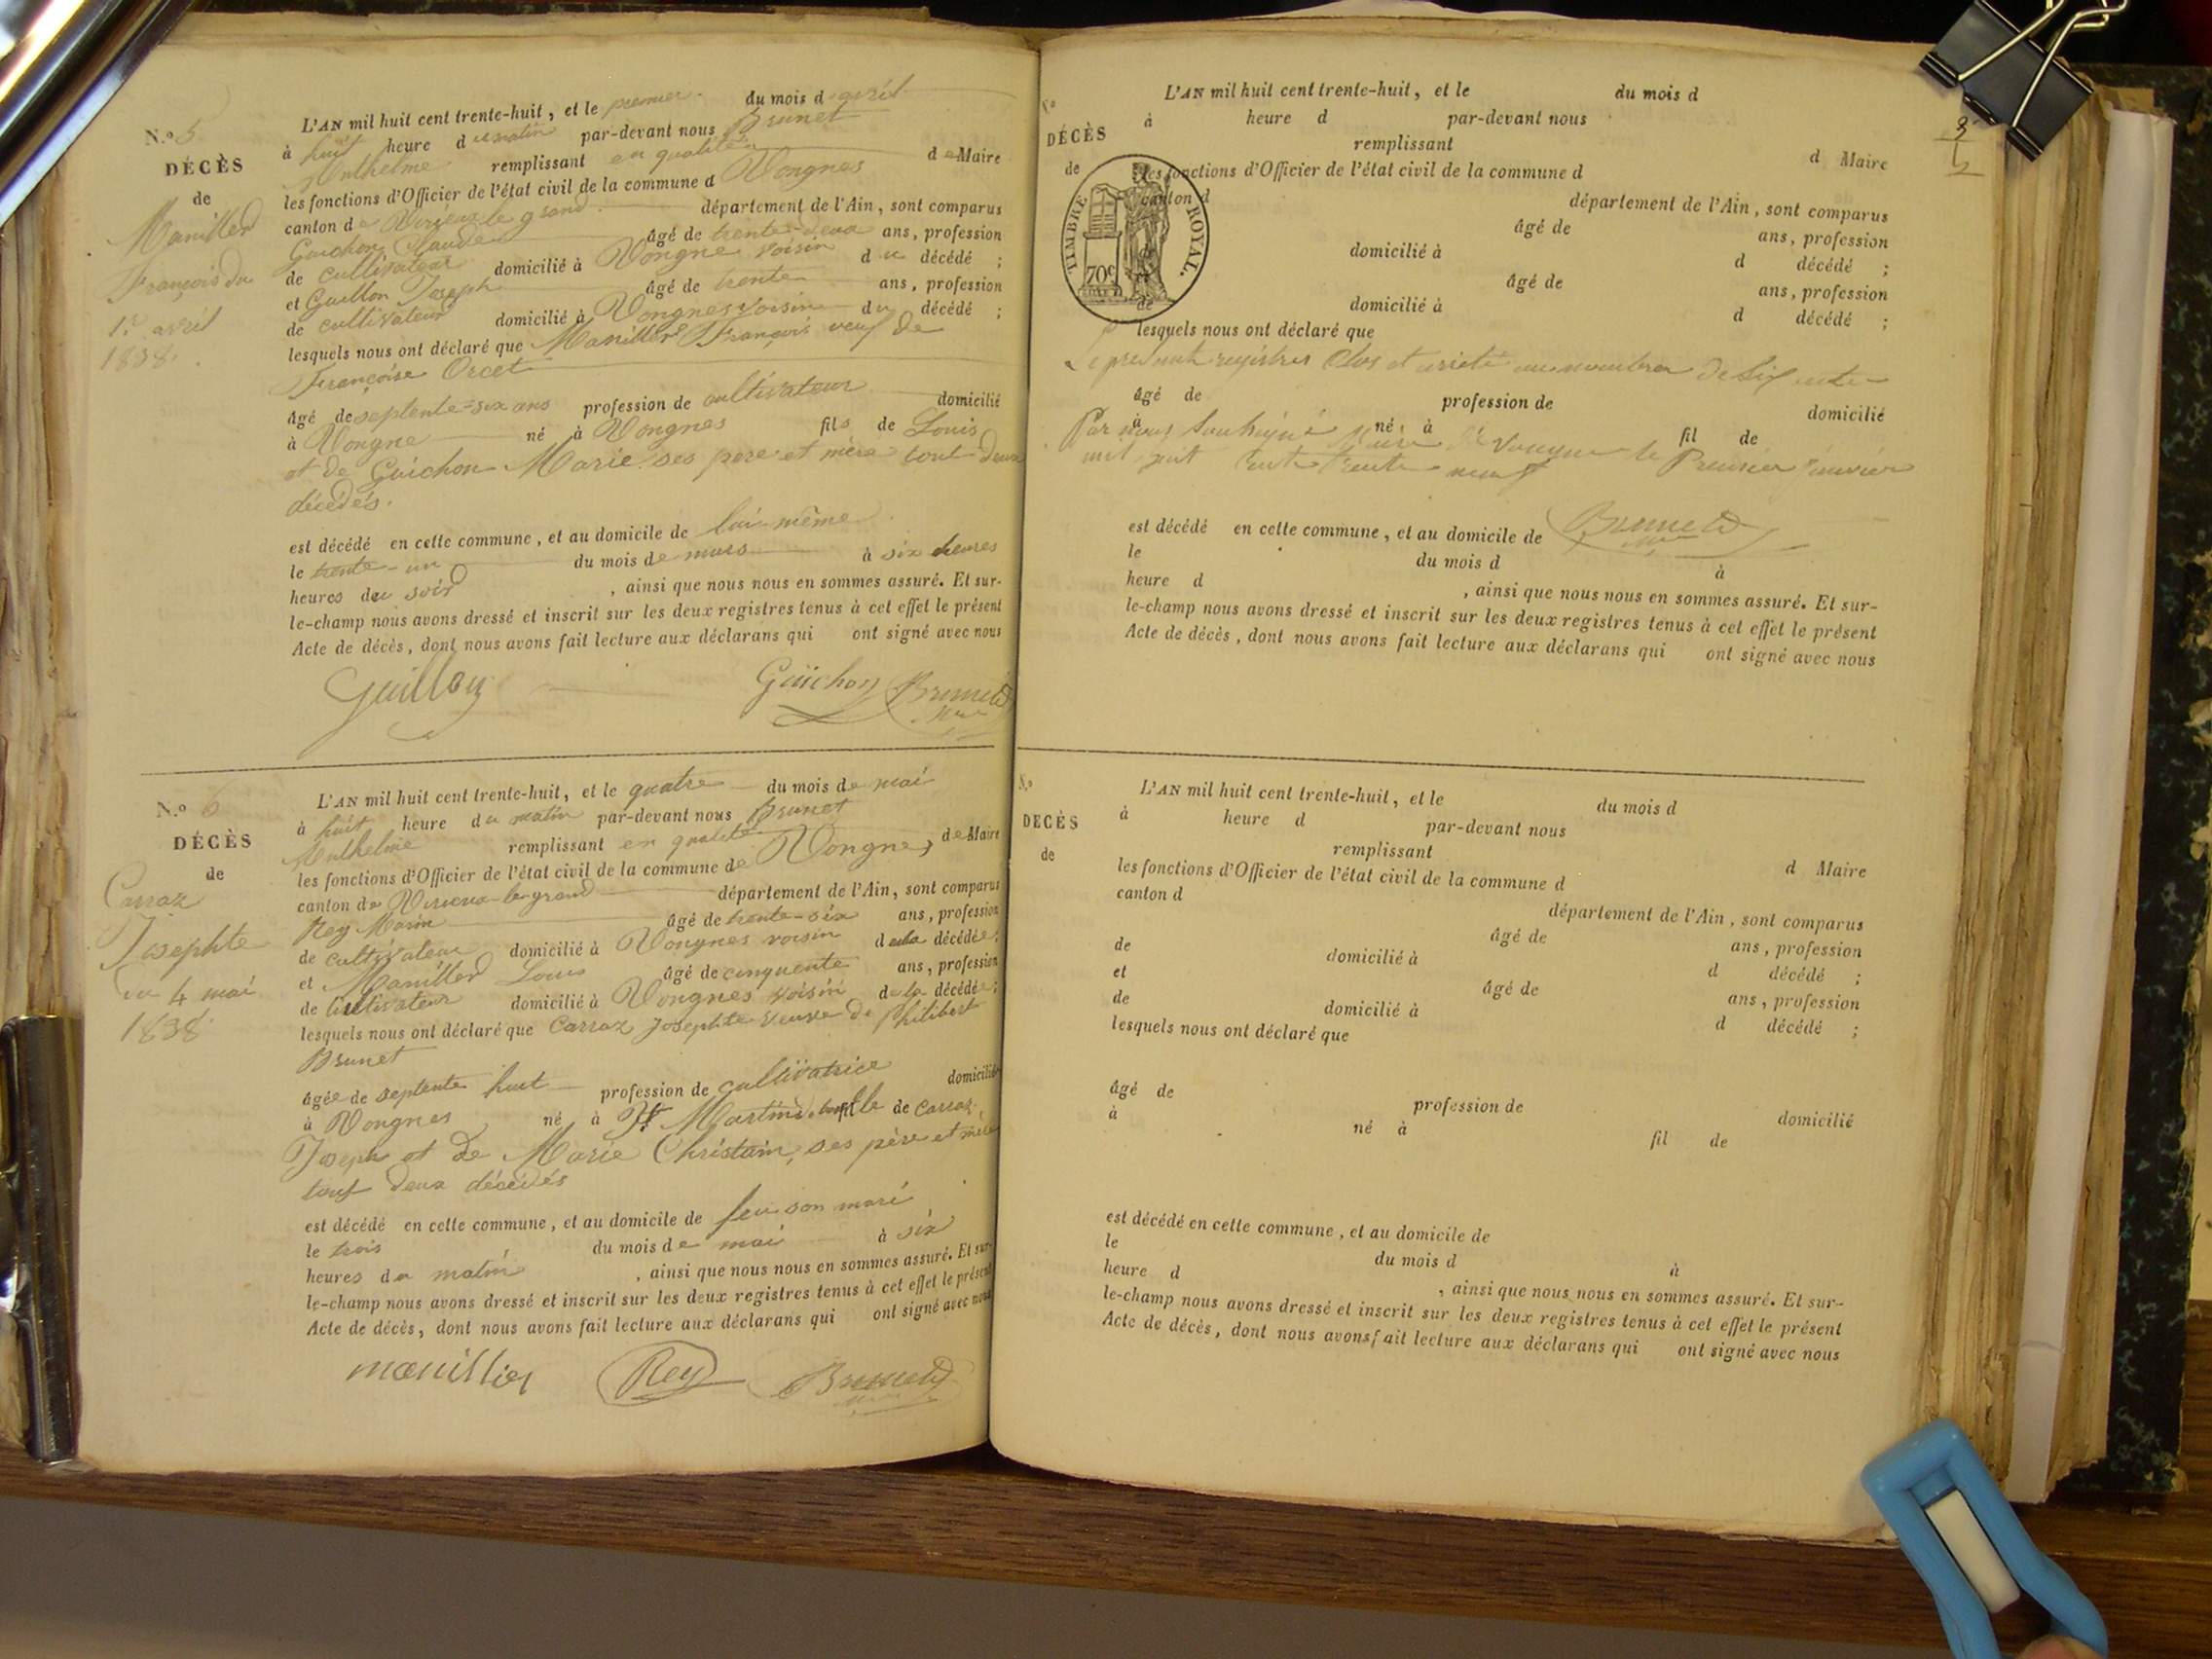 N.º 5
DÉCÈS
de
Maniller
François du
1.er avril
1838.
L'AN mil huit cent trente-huit, et le premier du mois d avril
à huit heure du matin par-devant nous Brunet
Anthelme remplissant en qualité de Maire
les fonctions d'Officier de l'état civil de la commune d Vongnes
canton de Virieux le grand département de l'Ain, sont comparus
Guichon Claude âgé de trente-deux ans, profession
de cultivateur domicilié à Vongne voisin du décédé ;
et Guillon Joseph âgé de trente ans, profession
de cultivateur domicilié à Vongnes voisin du décédé ;
lesquels nous ont déclaré que Maniller François veuf de
Françoise Orcet
âgé de septente-six ans profession de cultivateur domicilié
à Vongne né à Vongnes fils de Louis
et de Guichon Marie ses père et mère tout deux
décédés.
est décédé en cette commune, et au domicile de lui-même
le trente-un du mois de mars à six heures
heures du soir , ainsi que nous nous en sommes assuré. Et sur-
le-champ nous avons dressé et inscrit sur les deux registres tenus à cet effet le présent
Acte de décès, dont nous avons fait lecture aux déclarans qui ont signé avec nous
Guillon Guichon Brunet
N.º 6
DÉCÈS
de
Carraz
Josephte
du 4 mai
1838.
L'AN mil huit cent trente-huit, et le quatre du mois de mai
à huit heure du matin par-devant nous Brunet
Anthelme remplissant en qualité de Maire
les fonctions d'Officier de l'état civil de la commune de Vongnes
canton de Virieux-le-grand département de l'Ain, sont comparus
Rey Marin âgé de trente-six ans, profession
de cultivateur domicilié à Vongnes voisin de la décédée ;
et Maniller Louis âgé de cinquente ans, profession
de cultivateur domicilié à Vongnes voisin de la décédée ;
lesquels nous ont déclaré que Carraz Josephte veuve de Philibert
Brunet
âgée de septente huit profession de cultivatrice domicilié
à Vongnes né à St Martin fille de Carraz
Joseph et de Marie Christain, ses père et mère
tout deux décédés
est décédé en cette commune, et au domicile de feu son mari
le trois du mois de mai à six
heures du matin , ainsi que nous nous en sommes assuré. Et sur-
le-champ nous avons dressé et inscrit sur les deux registres tenus à cet effet le présent
Acte de décès, dont nous avons fait lecture aux déclarans qui ont signé avec nous
manillier Rey Brunet
N.º
DÉCÈS
de
TIMBRE ROYAL.
70c
L'AN mil huit cent trente-huit, et le du mois d
à heure d par-devant nous
remplissant d Maire
les fonctions d'Officier de l'état civil de la commune d
canton d département de l'Ain, sont comparus
âgé de ans, profession
domicilié à d décédé ;
âgé de ans, profession
de domicilié à d décédé ;
lesquels nous ont déclaré que
Le présent registres Clos et arrêté au nombre de Six actes
âgé de profession de domicilié
à né à fil de
Par nous Soussigné Maire de Vongne le Premier Janvier
mil huit cents trente neuf
est décédé en cette commune, et au domicile de
Brunet
le du mois d à
heure d , ainsi que nous nous en sommes assuré. Et sur-
le-champ nous avons dressé et inscrit sur les deux registres tenus à cet effet le présent
Acte de décès, dont nous avons fait lecture aux déclarans qui ont signé avec nous
N.º
DECÈS
de
L'AN mil huit cent trente-huit, et le du mois d
à heure d par-devant nous
remplissant d Maire
les fonctions d'Officier de l'état civil de la commune d
canton d département de l'Ain, sont comparus
âgé de ans, profession
de domicilié à d décédé ;
et âgé de ans, profession
de domicilié à d décédé ;
lesquels nous ont déclaré que
âgé de profession de domicilié
à né à fil de
est décédé en cette commune, et au domicile de
le du mois d à
heure d , ainsi que nous nous en sommes assuré. Et sur-
le-champ nous avons dressé et inscrit sur les deux registres tenus à cet effet le présent
Acte de décès, dont nous avons fait lecture aux déclarans qui ont signé avec nous